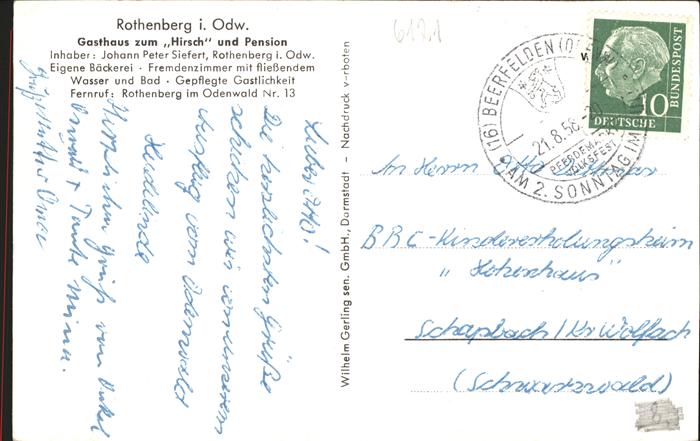 Rothenberg i. Odw.
Gasthaus zum „Hirsch" und Pension
Inhaber: Johann Peter Siefert, Rothenberg i. Odw.
Eigene Bäckerei · Fremdenzimmer mit fließendem
Wasser und Bad · Gepflegte Gastlichkeit
Fernruf: Rothenberg im Odenwald Nr. 13
Lieber Otto!
Die herzlichsten Grüße
schicken wir von unserem
Ausflug vom Odenwald
Heidelinde
Herzlichen Gruß von Onkel
u. Tante Minna.
Gruß Mutter Oma
Wilhelm Gerling sen. GmbH., Darmstadt - Nachdruck verboten
6121
(16) BEERFELDEN
21.8.58
BEERFELDER
VOLKSFEST
AM 2. SONNTAG IM
DEUTSCHE
BUNDESPOST
10
An Herrn Otto
BBC-Kindererholungsheim
„Hohenhaus"
Schapbach / Kr. Wolfach
(Schwarzwald)